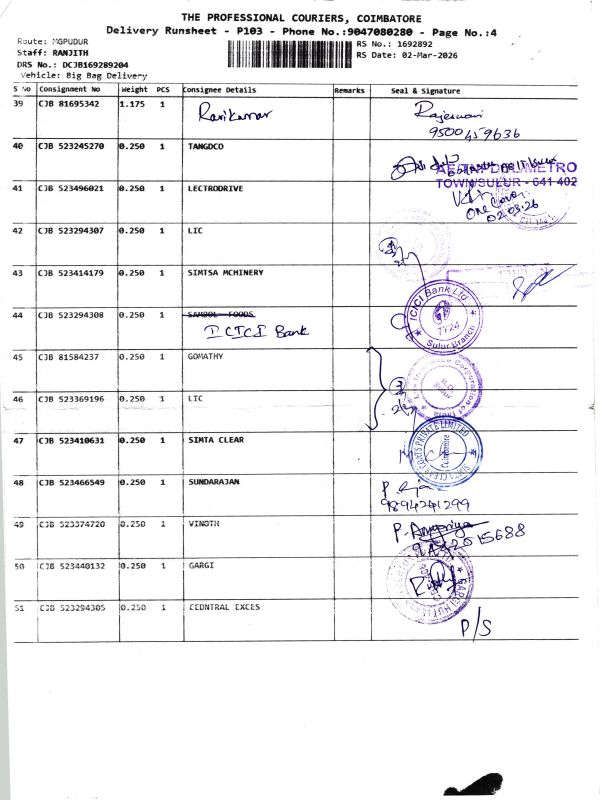 THE PROFESSIONAL COURIERS, COIMBATORE
Delivery Runsheet - P103 - Phone No.:9047080280 - Page No.:4
Route: MGPUDUR
Staff: RANJITH
DRS No.: DCJB169289204
Vehicle: Big Bag Delivery
RS No.: 1692892
RS Date: 02-Mar-2026
S No Consignment No Weight PCS Consignee Details Remarks Seal & Signature
39 CJB 81695342 1.175 1 Ravikumar Rajeswari
9500459636
40 CJB 523245270 0.250 1 TANGDCO
METRO
TOWN/SULUR - 641 402
41 CJB 523496021 0.250 1 LECTRODRIVE
One Cover
02.03.26
42 CJB 523294307 0.250 1 LIC
43 CJB 523414179 0.250 1 SIMTSA MCHINERY
44 CJB 523294308 0.250 1 SAMBOL FOODS
ICICI Bank
ICICI Bank Ltd
7724
Sulur Branch
45 CJB 81584237 0.250 1 GOMATHY
46 CJB 523369196 0.250 1 LIC
47 CJB 523410631 0.250 1 SIMTA CLEAR
PRIVATE LIMITED
Coimbatore
48 CJB 523466549 0.250 1 SUNDARAJAN
9894241299
49 CJB 523374720 0.250 1 VINOTH
50 CJB 523440132 0.250 1 GARGI
51 CJB 523294305 0.250 1 CEDNTRAL EXCES
P/S